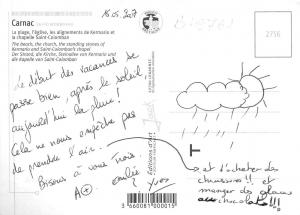 Carnac
16.05.2007
La plage, l'église, les alignements de Kermario et
la chapelle Saint-Colomban
The beach, the church, the standing stones of
Kermario and Saint-Colomban's chapel
Der Strand, die Kirche, Steinallee von Kermario und
die Kapelle von Saint-Colomban
2756
Le début des vacances se
passe bien, après le soleil
aujourd'hui la pluie !
Cela ne nous empêche pas
de prendre l'air.
Bisous à vous Trois
A+
émilie
Yves
T
et d'acheter des
chaussures !! et
manger des glaces
au chocolat !!!
Editions d'Art
3 660081 000015